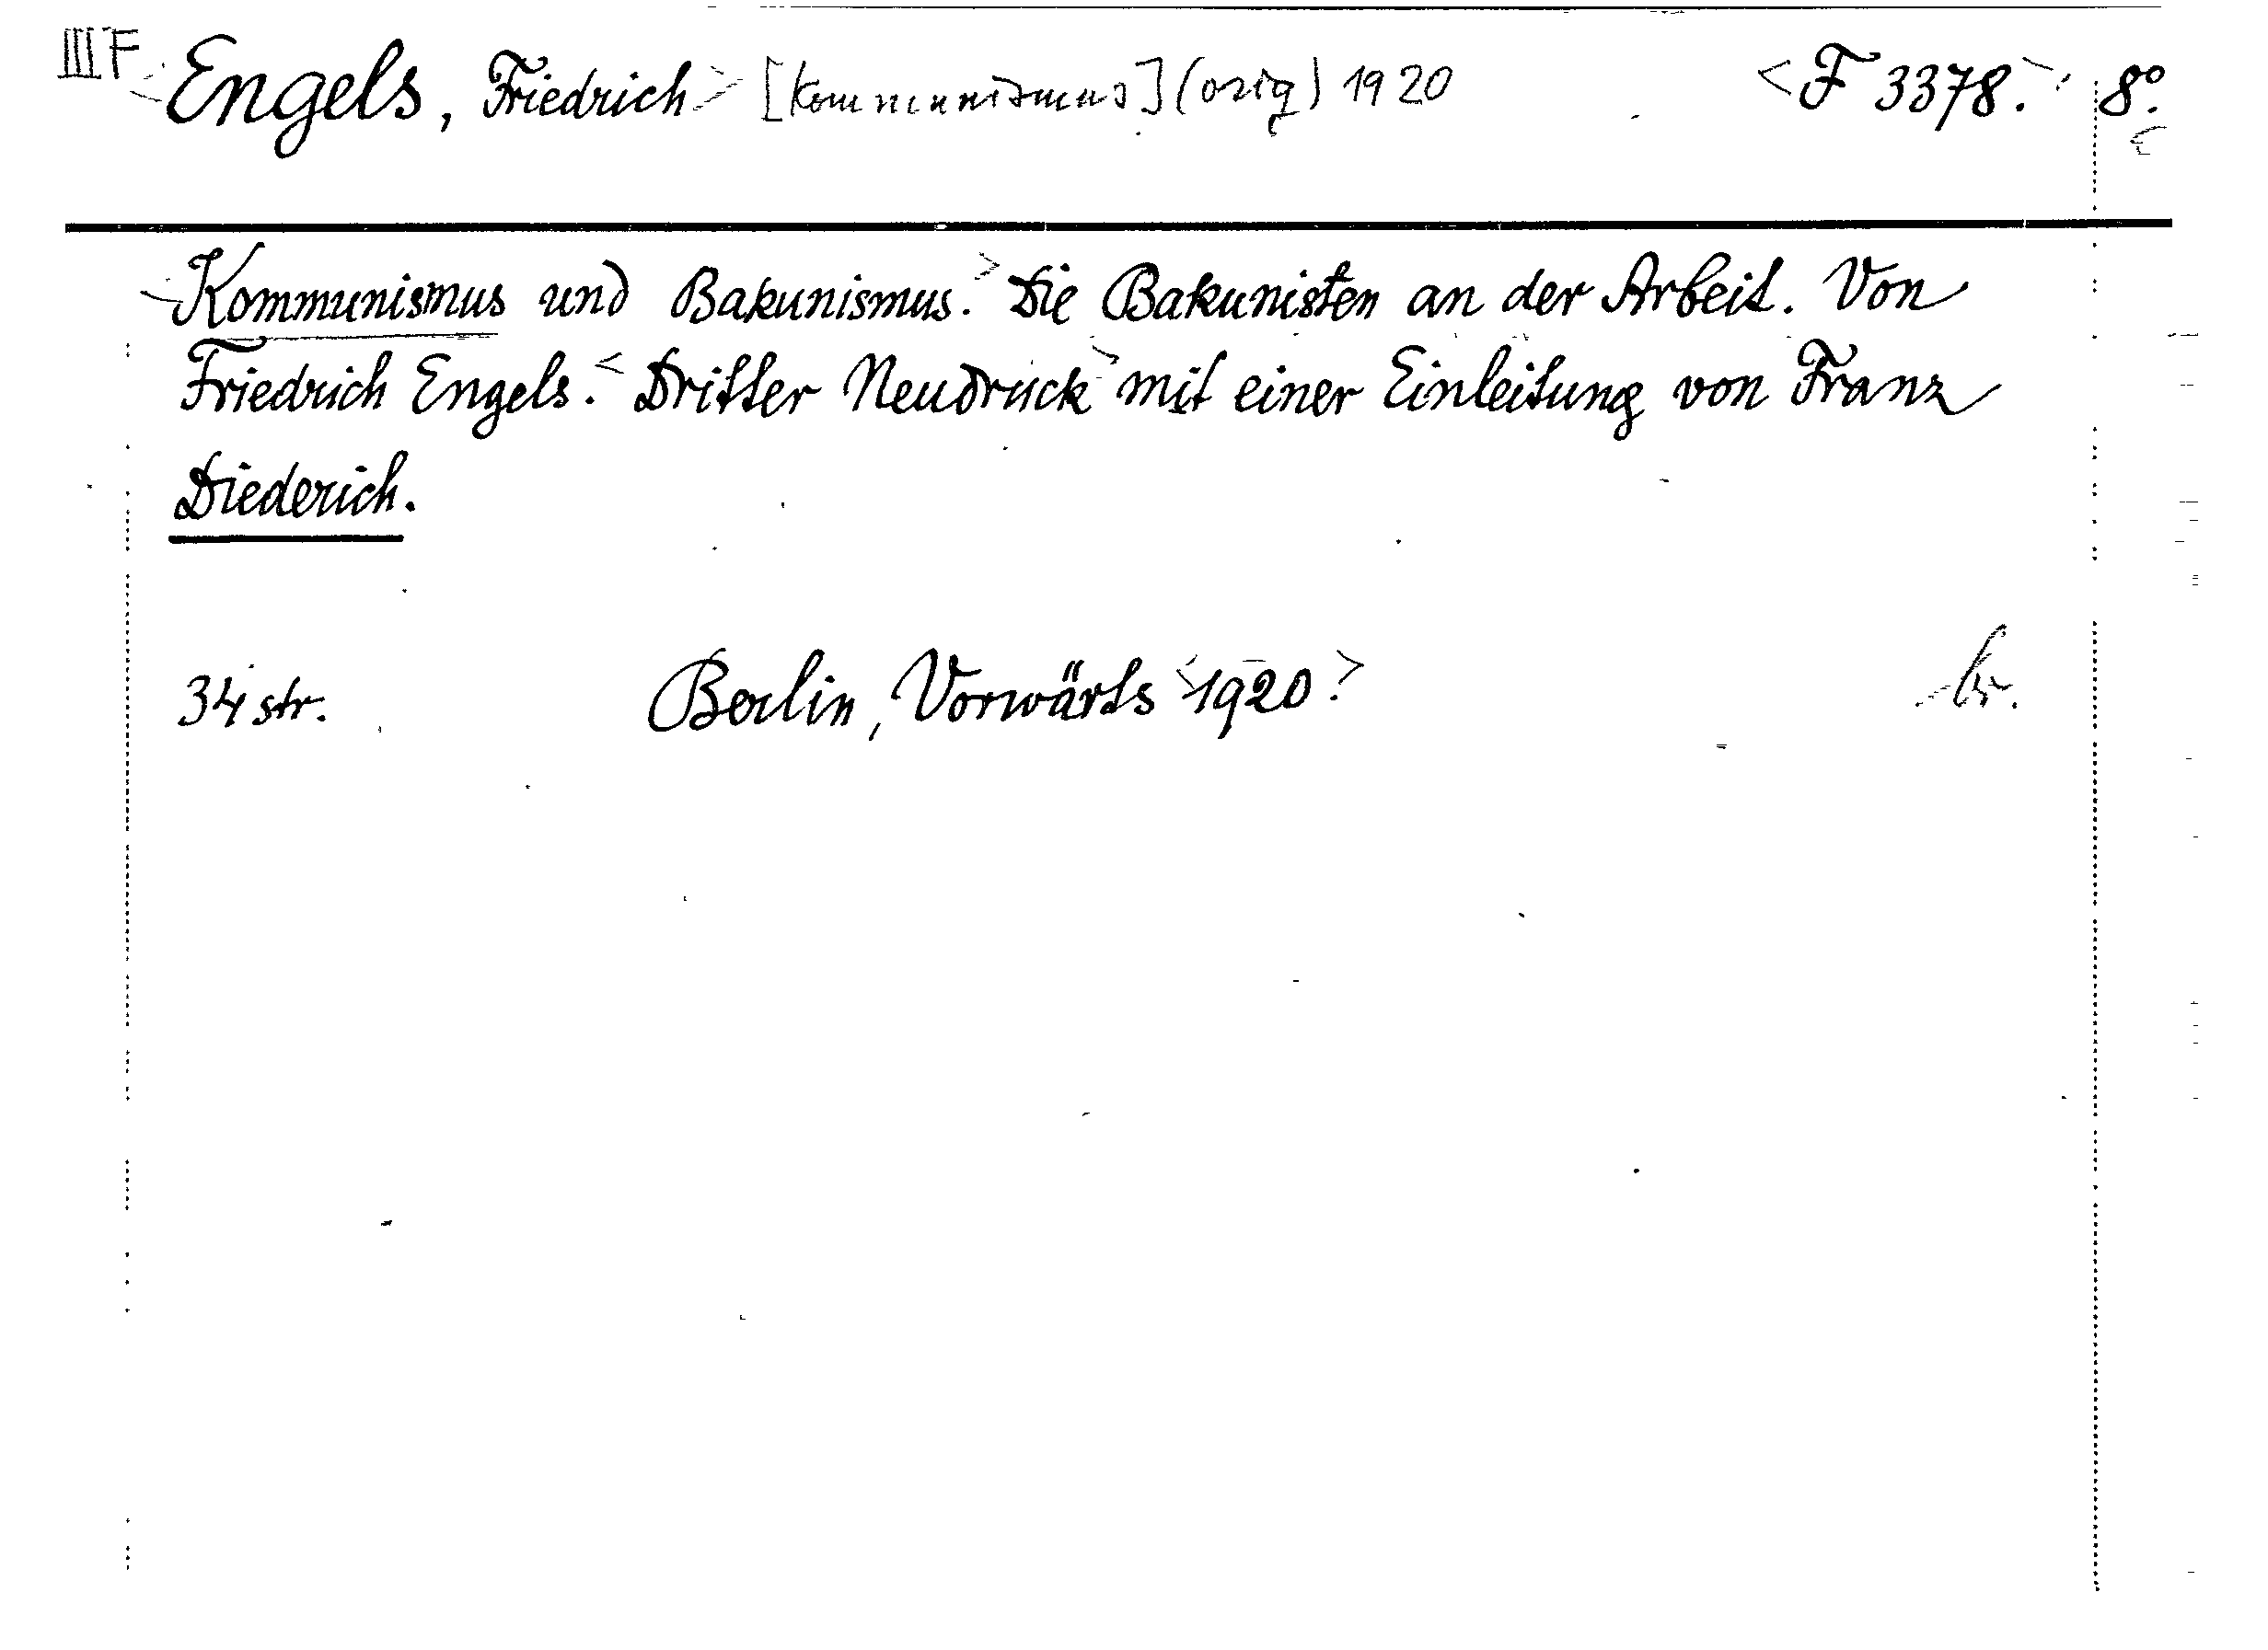 III F Engels, Friedrich [Kommunismus] (orig) 1920 <F 3378.> 8°.
<Kommunismus und Bakunismus.> Die Bakunisten an der Arbeit. Von
Friedrich Engels. <Dritter Neudruck> mit einer Einleitung von Franz
Diederich.
34 str. Berlin, Vorwärts <1920.> br.